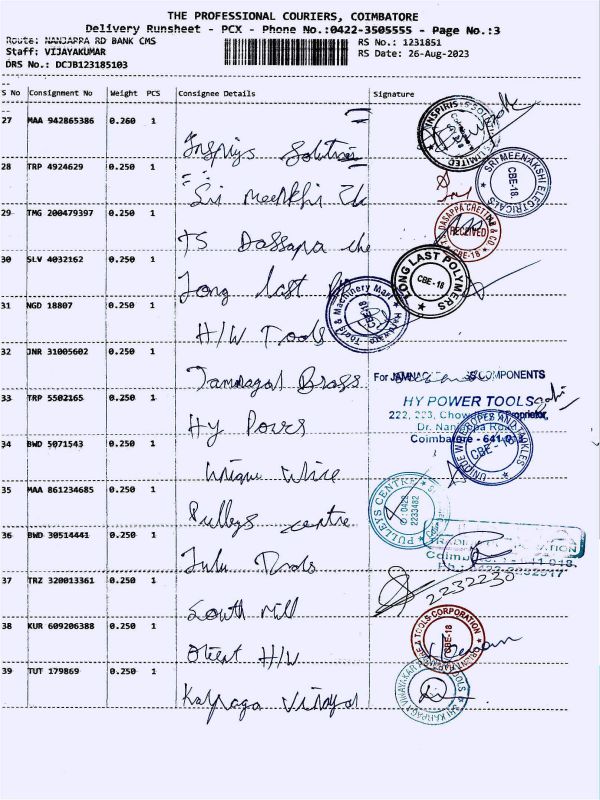 THE PROFESSIONAL COURIERS, COIMBATORE
Delivery Runsheet - PCX - Phone No.:0422-3505555 - Page No.:3
Route: NANJAPPA RD BANK CMS
RS No.: 1231851
Staff: VIJAYAKUMAR
RS Date: 26-Aug-2023
DRS No.: DCJB123185103
S No Consignment No Weight PCS Consignee Details Signature
27 MAA 942865386 0.260 1
Inspiys Solution
28 TRP 4924629 0.250 1
Sri Meenkhi Elc
29 TMG 200479397 0.250 1
TS Dassapa che
30 SLV 4032162 0.250 1
Long last
31 NGD 18807 0.250 1
H/W Tools
32 JNR 31005602 0.250 1
Jamnagal Brass
33 TRP 5502165 0.250 1
Hy Powes
34 BWD 5071543 0.250 1
Unique Wire
35 MAA 861234685 0.250 1
Pulleys centre
36 BWD 30514441 0.250 1
Tulu Tools
37 TRZ 320013361 0.250 1
South Mill
38 KUR 609206388 0.250 1
Orient H/W
39 TUT 179869 0.250 1
Karpaga Vinayal
SRI MEENAKSHI ELECTRICALS
CBE-18
DASAPPA CHETTIAR & CO
RECEIVED
CBE-18
LONG LAST POLYMERS
CBE-18
Hardware Tools & Machinery Mart
CBE-18
For COMPONENTS
HY POWER TOOLS
222, 223, Proprietor,
Dr. Nanjappa Road,
Coimbatore - 641 018
UNIQUE WIRE ROPES AND TACKLES
CBE-18
PULLEYS CENTRE
0422
2233482
2232230
TOOLS CORPORATION
CBE-18